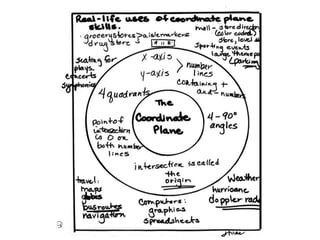 Real-life uses of coordinate plane
skills.
mall - store directory
(color coded)
store, level
• grocery stores > aisle markers
drug store
sporting events
large theme parks
(parking
seating for
plays,
concerts
symphonies
x-axis
y-axis
> number
lines
containing +
and - numbers
4 quadrants
The
Coordinate
Plane
4-90°
angles
point of
intersection
is 0 on
both number
lines
intersection is called
the
origin
travel:
maps
globes
bus routes
navigation
Computers:
graphics
spreadsheets
Weather
hurricane
doppler radar